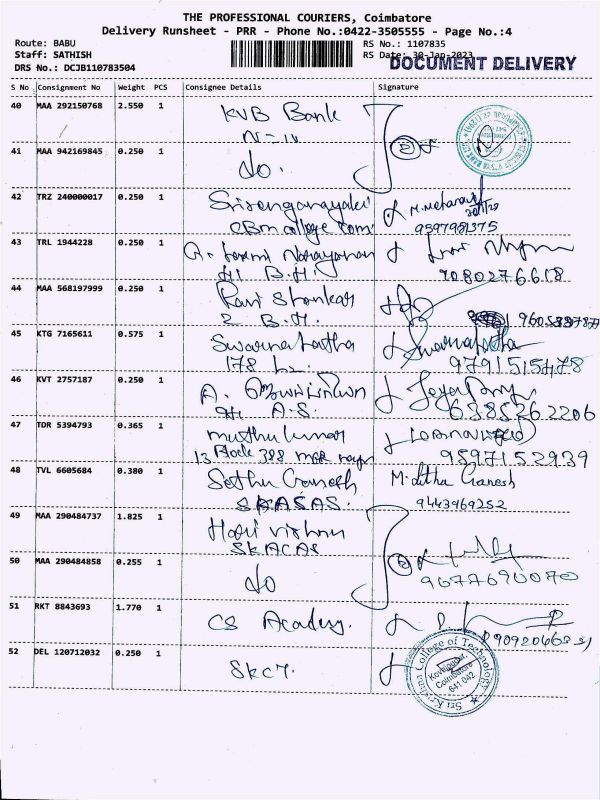 THE PROFESSIONAL COURIERS, Coimbatore
Delivery Runsheet - PRR - Phone No.:0422-3505555 - Page No.:4
Route: BABU
Staff: SATHISH
DRS No.: DCJB110783504
RS No.: 1107835
RS Date: 30-Jan-2023
DOCUMENT DELIVERY
S No Consignment No Weight PCS Consignee Details Signature
40 MAA 292150768 2.550 1 KVB Bank
41 MAA 942169845 0.250 1 do.
42 TRZ 240000017 0.250 1
9597981375
43 TRL 1944228 0.250 1
7080276618
44 MAA 568197999 0.250 1 Ravi Shankar
45 KTG 7165611 0.575 1 Swarnalatha Swarnalatha
178 9791515478
46 KVT 2757187 0.250 1 A.
6385262206
47 TDR 5394793 0.365 1 Muthu kumar
13 Block 388 9597152939
48 TVL 6605684 0.380 1 Sethu Ganesh Ganesh
SKASAS. 9443969252
49 MAA 290484737 1.825 1 Hari vishnu
SKACAS
50 MAA 290484858 0.255 1 do
9677690070
51 RKT 8843693 1.770 1 CS Academy.
52 DEL 120712032 0.250 1 SKCT.
Sri Krishna College of Technology
Kovaipudur,
Coimbatore
641 042